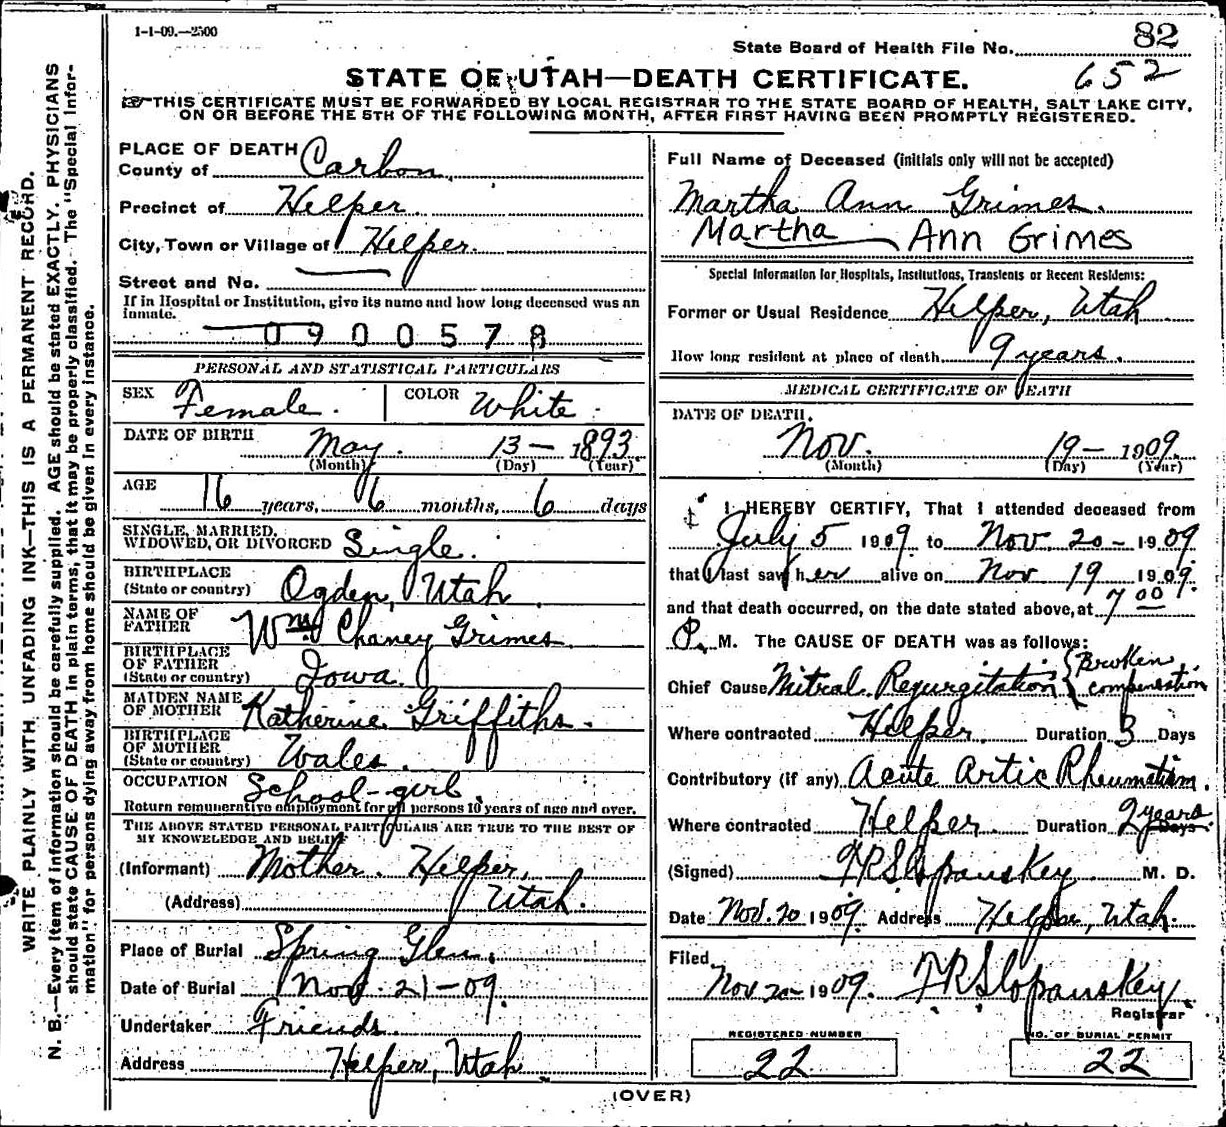 1-1-09.—2500
State Board of Health File No. 82
652
STATE OF UTAH—DEATH CERTIFICATE.
THIS CERTIFICATE MUST BE FORWARDED BY LOCAL REGISTRAR TO THE STATE BOARD OF HEALTH, SALT LAKE CITY,
ON OR BEFORE THE 5TH OF THE FOLLOWING MONTH, AFTER FIRST HAVING BEEN PROMPTLY REGISTERED.
WRITE PLAINLY WITH UNFADING INK—THIS IS A PERMANENT RECORD.
N. B.—Every item of information should be carefully supplied. AGE should be stated EXACTLY. PHYSICIANS
should state CAUSE OF DEATH in plain terms, that it may be properly classified. The "Special Infor-
mation" for persons dying away from home should be given in every instance.
PLACE OF DEATH
County of Carbon.
Precinct of Helper.
City, Town or Village of Helper.
Street and No.
If in Hospital or Institution, give its name and how long deceased was an
inmate.
0900578
PERSONAL AND STATISTICAL PARTICULARS
SEX Female. COLOR White.
DATE OF BIRTH May. 13— 1893.
(Month) (Day) (Year)
AGE 16 years, 6 months, 6 days
SINGLE, MARRIED,
WIDOWED, OR DIVORCED Single.
BIRTHPLACE
(State or country) Ogden, Utah.
NAME OF
FATHER Wm Chaney Grimes.
BIRTHPLACE
OF FATHER
(State or country) Iowa.
MAIDEN NAME
OF MOTHER Katherine Griffiths.
BIRTHPLACE
OF MOTHER
(State or country) Wales.
OCCUPATION School-girl.
Return remunerative employment for all persons 10 years of age and over.
THE ABOVE STATED PERSONAL PARTICULARS ARE TRUE TO THE BEST OF
MY KNOWELEDGE AND BELIEF
(Informant) Mother. Helper,
(Address) Utah.
Place of Burial Spring Glen.
Date of Burial Nov. 21—09.
Undertaker Friends.
Address Helper, Utah.
Full Name of Deceased (initials only will not be accepted)
Martha Ann Grimes.
Martha Ann Grimes
Special Information for Hospitals, Institutions, Transients or Recent Residents:
Former or Usual Residence Helper, Utah
How long resident at place of death 9 years.
MEDICAL CERTIFICATE OF DEATH
DATE OF DEATH.
Nov. 19— 1909.
(Month) (Day) (Year)
I HEREBY CERTIFY, That I attended deceased from
July 5 1909. to Nov. 20—1909
that I last saw her alive on Nov 19 1909.
and that death occurred, on the date stated above, at 7 00
P. M. The CAUSE OF DEATH was as follows:
Chief Cause Mitral Regurgitation { Broken compensation
Where contracted Helper. Duration 3 Days
Contributory (if any) Acute Artic Rheumatism.
Where contracted Helper. Duration 2 years Days.
(Signed) FR Slopanskey. M. D.
Date Nov. 20 1909. Address Helper, Utah.
Filed
Nov 20—1909. FR Slopanskey.
Registrar
REGISTERED NUMBER
22
NO. OF BURIAL PERMIT
22
(OVER)